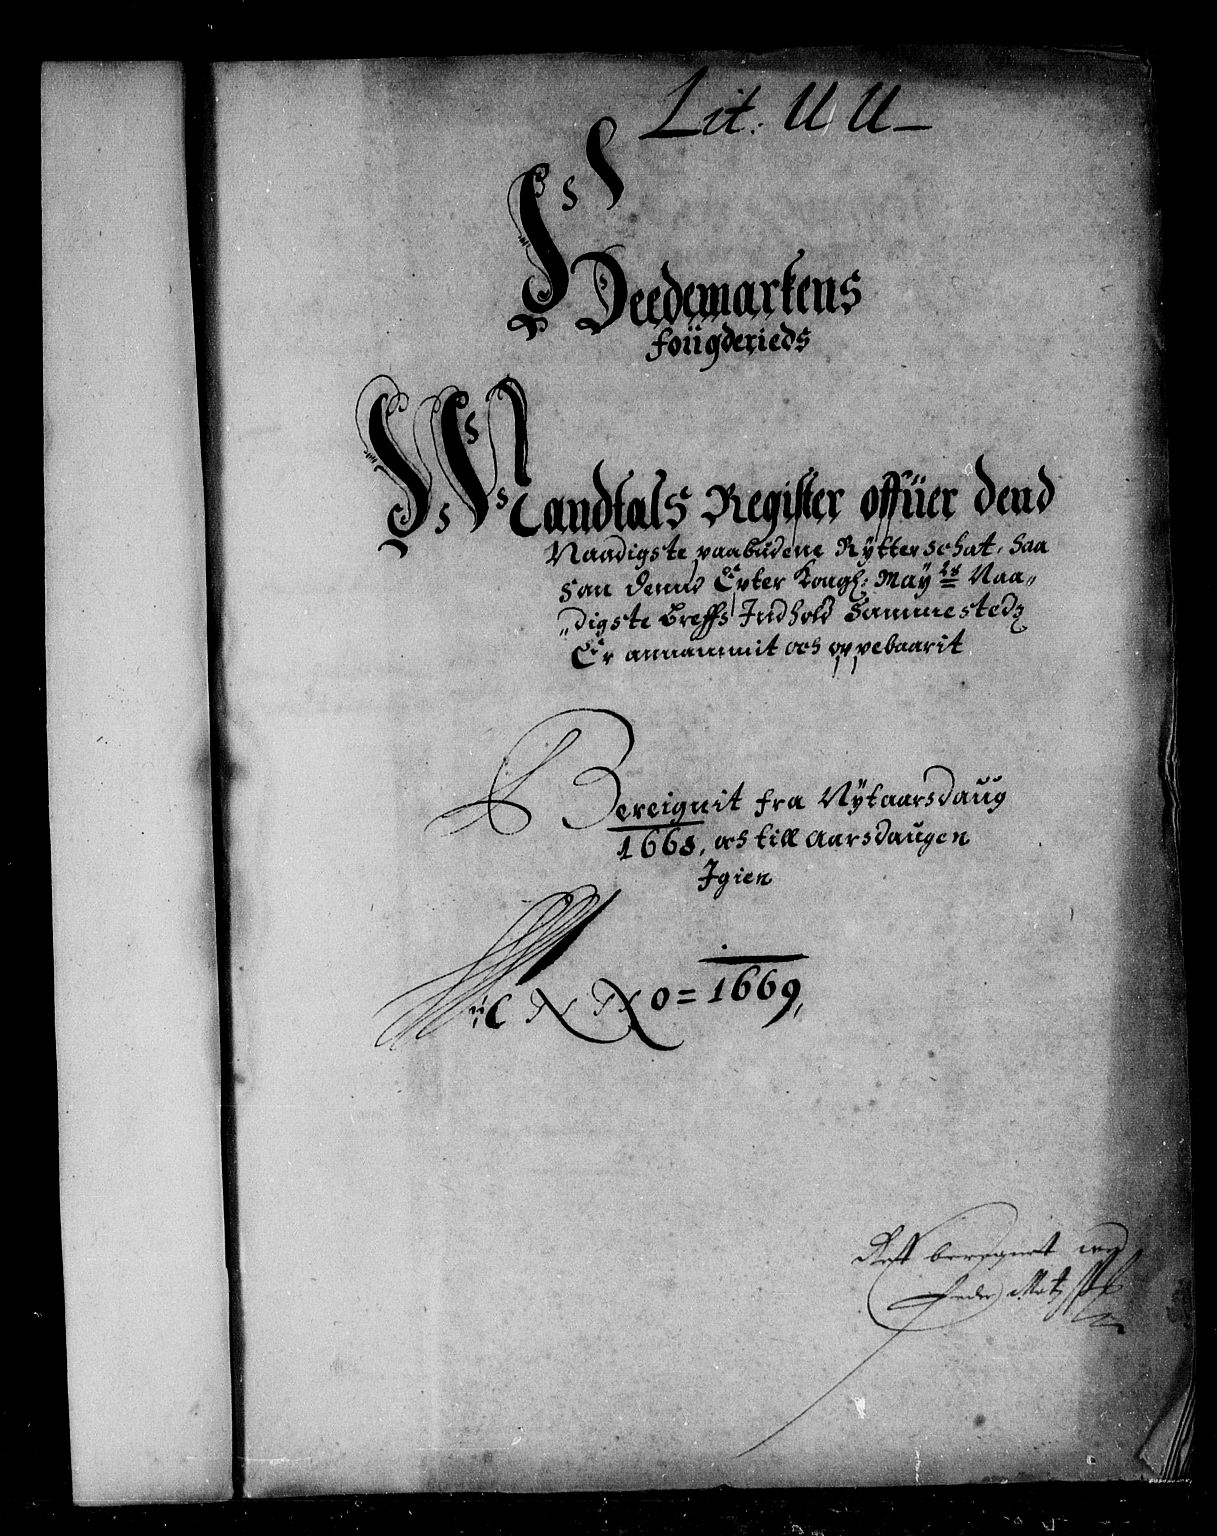 Lit. UU
Heedemarkens
fougderieds
Mandtals Register offuer dend
Naadigste paabudene Rytterschat, Saa
som denne Epter Kongl: May ts Naa-
digste breffs Indhold Sammestedz
Er annammit och oppebaarit
Bereignit fra Nytaarsdaug
1668, och till Aarsdaugen
Igien
Anno = 1669,
Rest beregnet
Peder